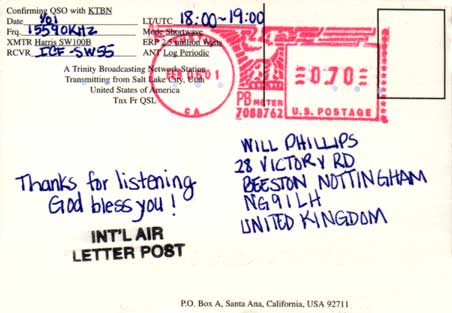 Confirming QSO with KTBN
Date 1/01 LT/UTC 18:00~19:00
Frq. 15590KHZ Mode Shortwave
XMTR Harris SW100B ERP 2.5 million Watts
RCVR ICF-SW55 ANT Log Periodic
A Trinity Broadcasting Network Station
Transmitting from Salt Lake City, Utah
United States of America
Tnx Fr QSL
01
CA
PB METER
7088762
0.70
U.S. POSTAGE
Thanks for listening
God bless you!
INT'L AIR
LETTER POST
WILL PHILLIPS
28 VICTORY RD
BEESTON NOTTINGHAM
NG91LH
UNITED KINGDOM
P.O. Box A, Santa Ana, California, USA 92711